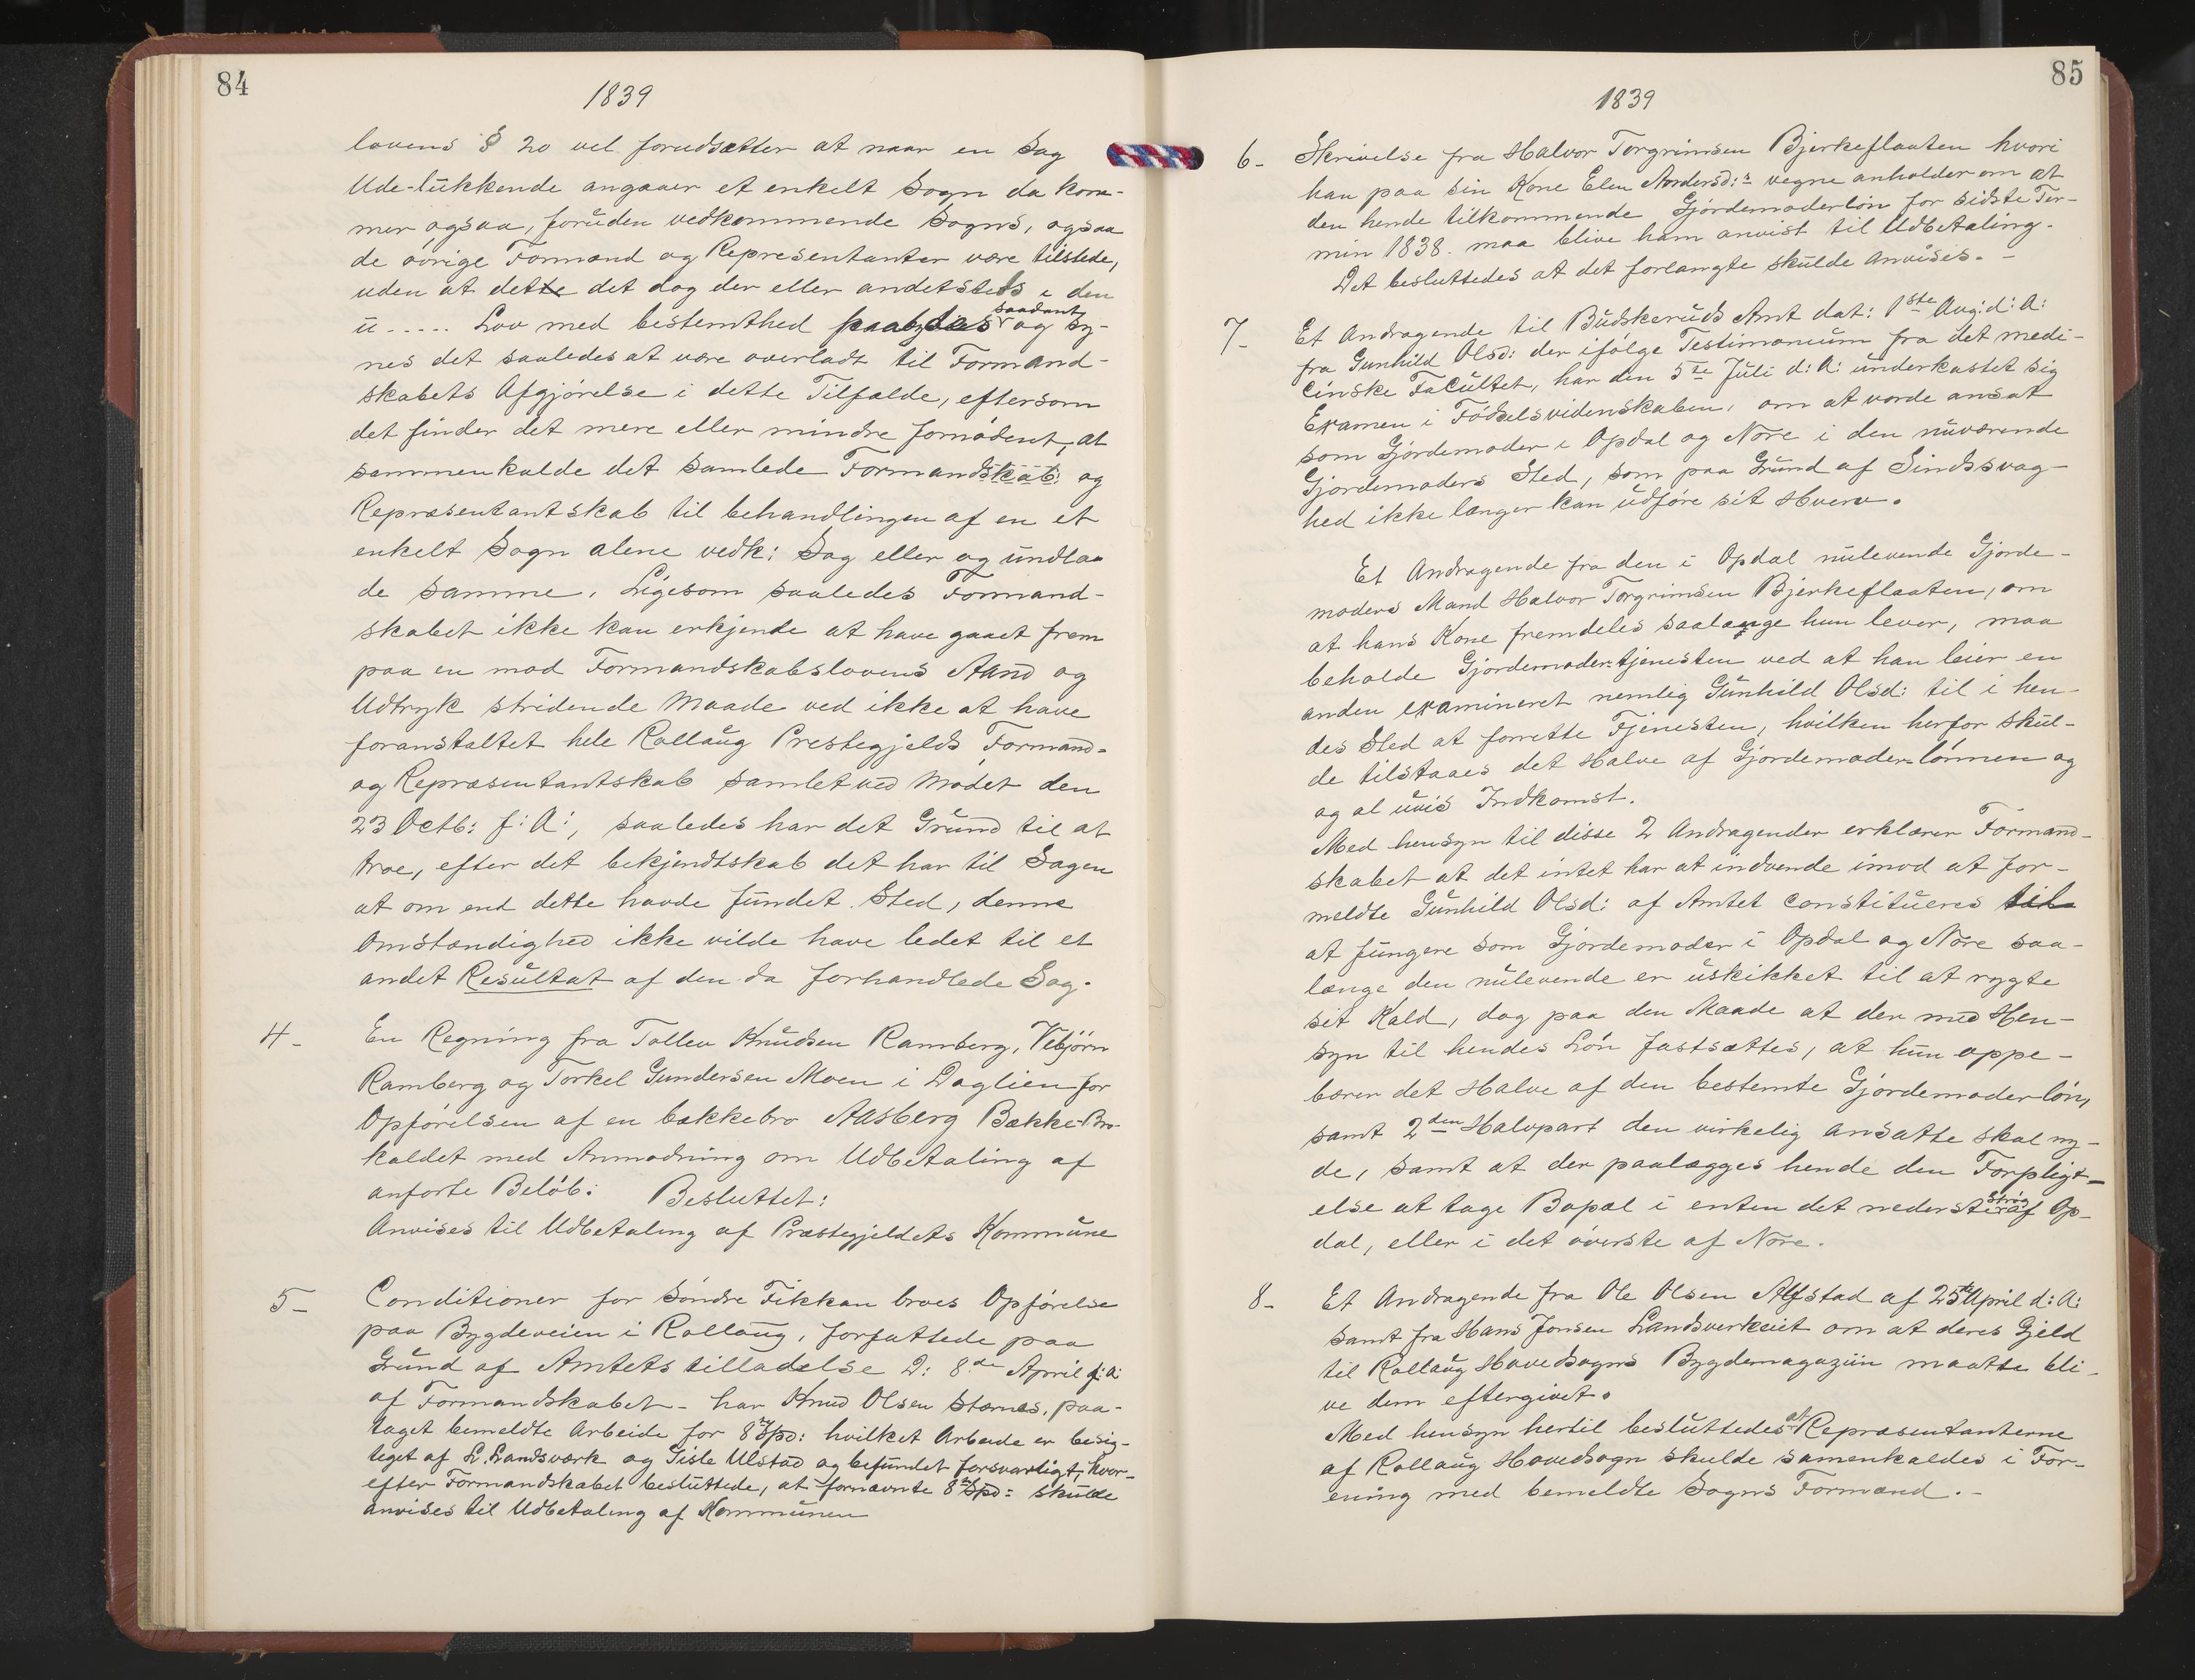 84
1839
lovens § 20 vel forudsætter at naar en Sag
Ude-lukkende angaaer et enkelt Sogn da kom-
mer ogsaa, foruden vedkommende Sogns, ogsaa
de øvrige Formænd og Representanter være tilstede,
uden at dette det dog der eller andetsteds i den
u..... Lov med bestemthed paabydes saadant og sy-
nes det saaledes at være overladt til Formand-
skabets Afgjørelse i dette Tilfælde, eftersom
det finder det mere eller mindre fornødent, at
sammenkalde det samlede Formandskab: og
Repræsentantskab til behandlingen af en et
enkelt Sogn alene vedk: Sag eller og undlaa
de samme. Ligesom saaledes Formand-
skabet ikke kan erkjende at have gaaet frem
paa en mod Formandskabslovens Aand og
Udtryk stridende Maade ved ikke at have
foranstaltet hele Rollaug Prestegjelds Formand-
og Repræsentantskab samlet ved Mødet den
23 Octb: f: A:, saaledes har det Grund til at
troe, efter det bekjendtskab det har til Sagen
at om end dette havde fundet Sted, denne
Omstændighed ikke vilde have ledet til et
andet Resultat af den da forhandlede Sag.
4- En Regning fra Tollev Knudsen Ramberg, Vebjørn
Ramberg og Torkel Gundersen Moen i Daglien for
Opførelsen af en bækkebro Aasberg Bække-Bro
kaldet med Anmodning om Udbetaling af
anførte Beløb: Besluttet:
Anvises til Udbetaling af Præstegjeldets Kommune
5- Conditioner for Søndre Fikkan broes Opførelse
paa Bygdeveien i Rollaug, forfattede paa
Grund af Amtets tilladelse D: 8de April d: A:
af Formandskabet - har Knud Olsen Stærnes, paa-
taget bemeldte Arbeide for 8 Spd: hvilket Arbeide er besig-
teget af L. Landsværk og Gisle Ulstad og befundet forsvarligt, hvor-
efter Formandskabet besluttede, at fornævnte 8 Spd: skulde
anvises til Udbetaling af Kommunen
85
1839
6- Skrivelse fra Halvor Torgrimsen Bjerkeflaaten hvori
han paa sin Kone Elen Nordersd:s vegne anholder om at
den hende tilkommende Gjordemoderløn for sidste Ter-
min 1838. maa blive ham anvist til Udbetaling.
Det besluttedes at det forlangte skulde anvises. -
7- Et Andragende til Budskeruds Amt dat: 1ste Aug: d: A:
fra Gunhild Olsd: der ifølge Testimonium fra det medi-
cinske Facultet, har den 5te Juli d: A: underkastet sig
Examen i Fødselsvidenskaben, om at vorde ansat
som Gjordemoder i Opdal og Nore i den nuværende
Gjordemoders Sted, som paa Grund af Sindssvag-
hed ikke længer kan udføre sit Hverv.
Et Andragende fra den i Opdal nulevende Gjorde-
moders Mand Halvor Torgrimsen Bjerkeflaaten, om
at hans Kone fremdeles saalænge hun lever, maa
beholde Gjordemoder-tjenesten ved at han leier en
anden examineret nemlig Gunhild Olsd: til i hen-
des Sted at forrette Tjenesten, hvilken herfor skul-
de tilstaaes det Halve af Gjordemoder-lønnen og
og al uvis Indkomst.
Med hensyn til disse 2 Andragender erklærer Formand-
skabet at det intet har at indvende imod at for-
meldte Gunhild Olsd: af Amtet constitueres til
at fungere som Gjordemoder i Opdal og Nore saa-
længe den nulevende er uskikket til at rygte
sit Kald, dog paa den Maade at der med Hen-
syn til hendes Løn fastsættes, at hun oppe-
bærer det Halve af den bestemte Gjordemoderløn,
samt 2den Halvpart den virkelig ansatte skal ny-
de, samt at der paalægges hende den Forpligt-
else at tage Bopæl i enten det nederste Strøg af Op-
dal, eller i det øverste af Nore.
8- Et Andragende fra Ole Olsen Alfstad af 25de April d: A:
samt fra Hans Jonsen Landsverkeiet om at deres Gjeld
til Rollaug Hovedsogns Bygdemagaziin maatte bli-
ve dem eftergivet.
Med hensyn hertil besluttedes at Repræsentanterne
af Rollaug Hovedsogn skulde samenkaldes i For-
ening med bemeldte Sogns Formænd. -